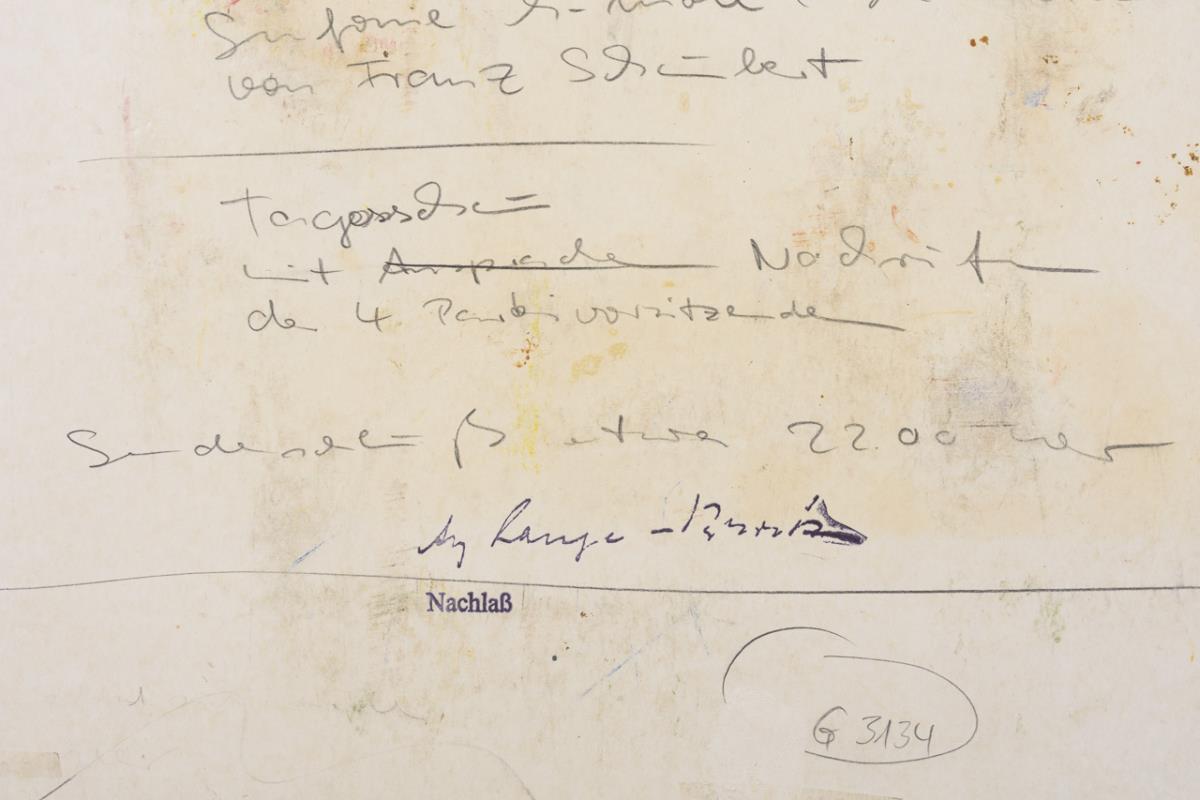 Sinfonie h-moll
von Franz Schubert
Tagesschau
mit Ansprache Nachruf
der 4 Parteivorsitzenden
Sendeschluß etwa 22.00 Uhr
Lange-
Nachlaß
G 3134